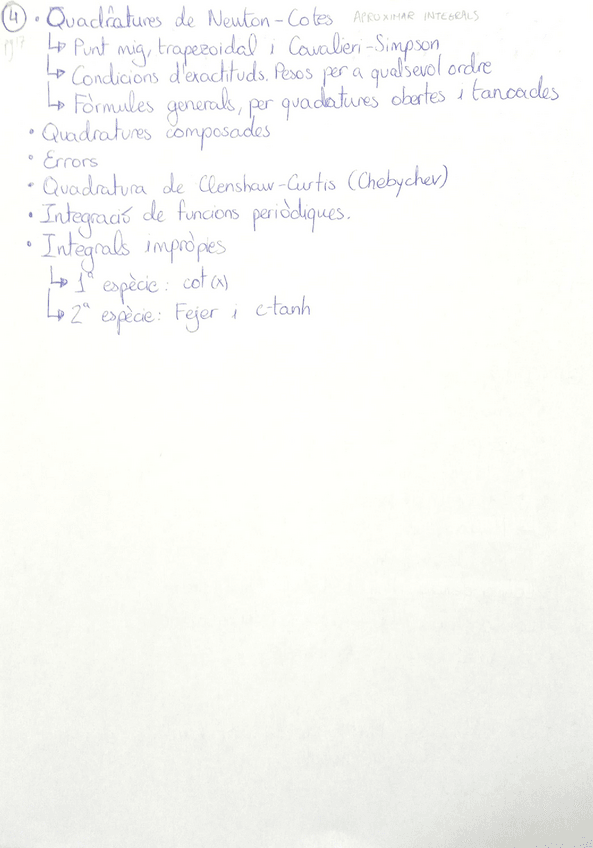 4 • Quadratures de Newton-Cotes APROXIMAR INTEGRALS
pg 17
↳ Punt mig, trapezoidal i Cavalieri-Simpson
↳ Condicions d'exactituds. Pesos per a qualsevol ordre
↳ Fòrmules generals, per quadratures obertes i tancades
• Quadratures composades
• Errors
• Quadratura de Clenshaw-Curtis (Chebychev)
• Integració de funcions periòdiques.
• Integrals impròpies
↳ 1ª espècie: cot(x)
↳ 2ª espècie: Fejer i c-tanh